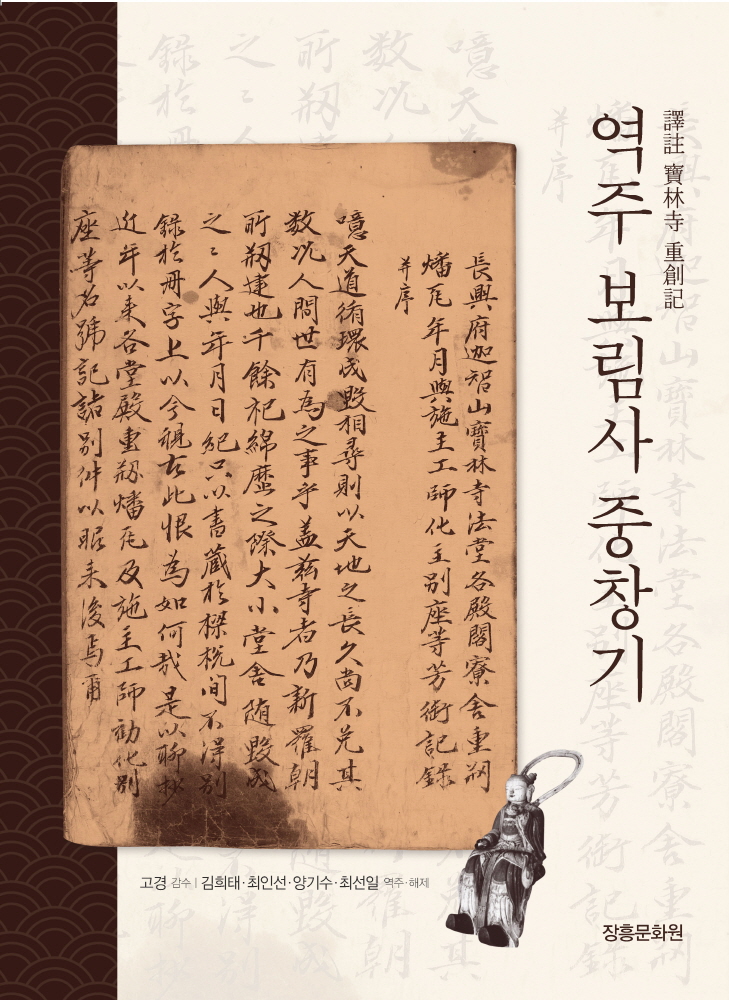 譯註 寶林寺 重創記
역주 보림사 중창기
長興府迦智山寶林寺法堂各殿閣寮舍重刱
燔瓦年月與施主工師化主別座等芳衘記錄
并序
噫天道循環成毁相尋則以天地之長久尚不免其
数况人間世有為之事乎盖玆寺者乃新羅朝
所刱建也千餘祀綿歷之際大小堂舍随毀成
之〻人與年月日紀只以書藏於樑梲间不得别
錄於冊字上以今視古此恨為如何哉是以聊抄
近年以来各堂殿重刱燔瓦及施主工師勸化别
座等名號記諸別件以昭来後焉爾
고경 감수 | 김희태·최인선·양기수·최선일 역주·해제
장흥문화원